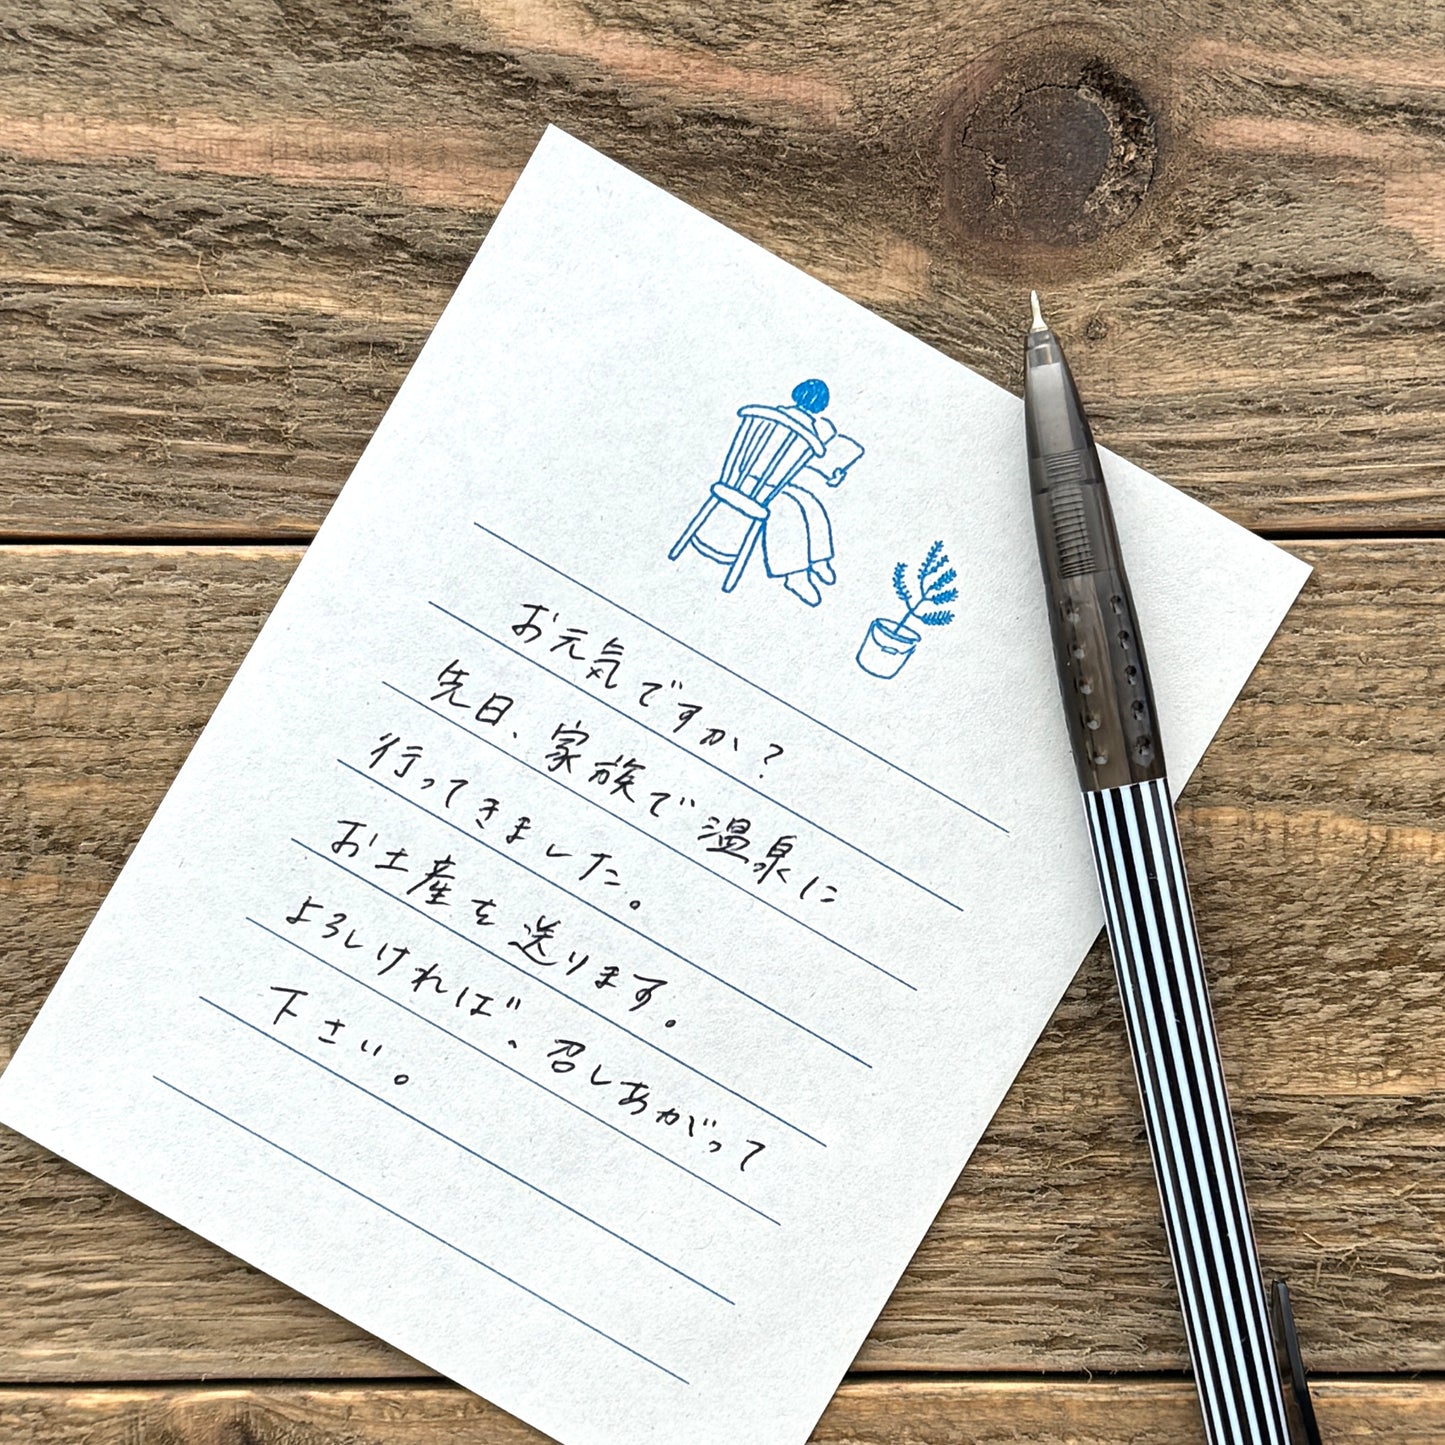 お元気ですか？
先日、家族で温泉に
行ってきました。
お土産を送ります。
よろしければ、召しあがって
下さい。